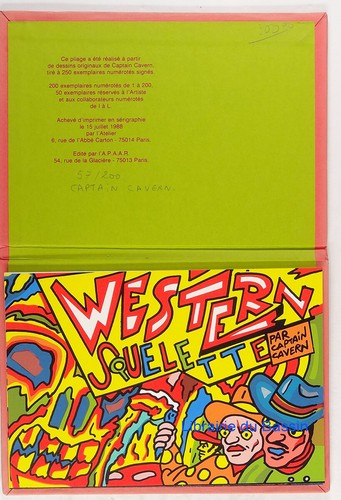 Ce pliage a été réalisé à partir
de dessins originaux de Captain Cavern,
tiré à 250 exemplaires numérotés signés.
200 exemplaires numérotés de 1 à 200,
50 exemplaires réservés à l'Artiste
et aux collaborateurs numérotés
de I à L.
Achevé d'imprimer en sérigraphie
le 15 juillet 1988
par l'Atelier
6, rue de l'Abbé Carton - 75014 Paris.
Edité par l'A.P.A.A.R.
54, rue de la Glacière - 75013 Paris.
57/200
CAPTAIN CAVERN.
WESTERN
SQUELETTE
PAR
CAPTAIN
CAVERN
Librairie du Bassin